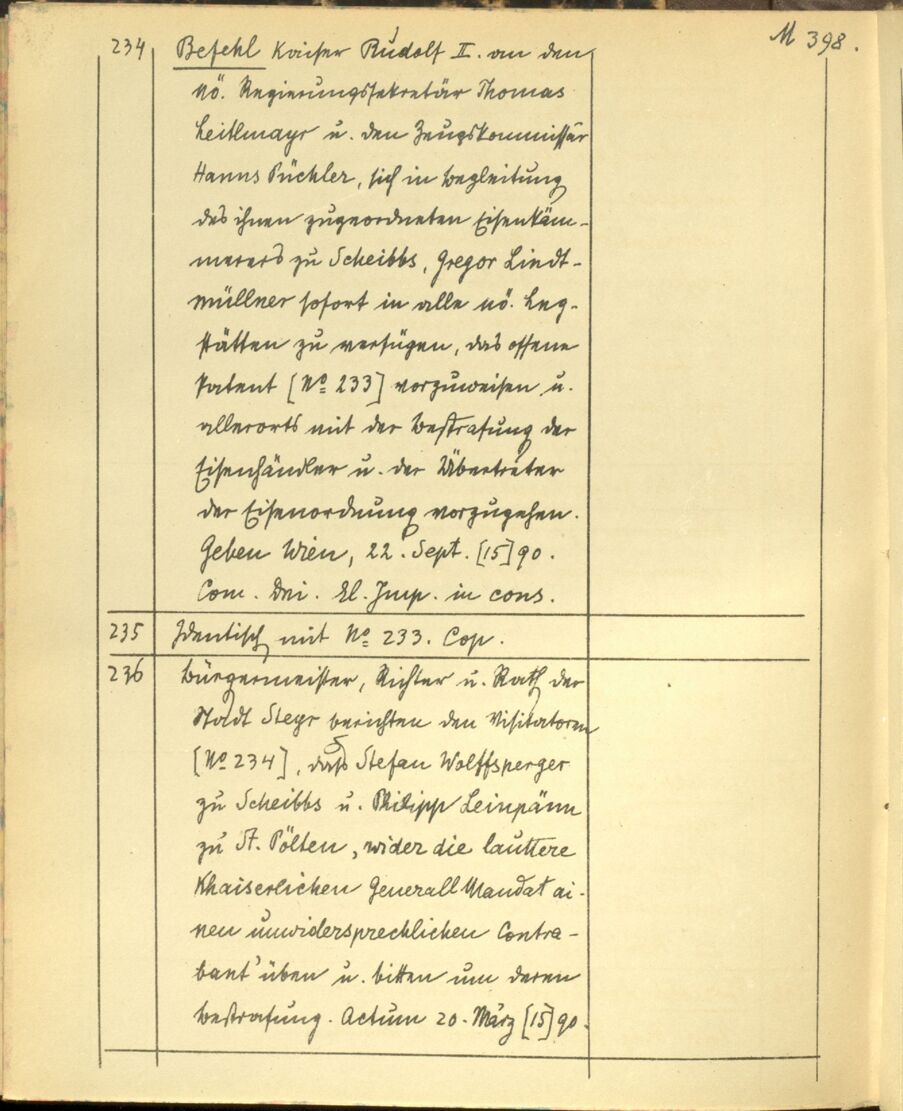 M 398.
234 Befehl Kaiser Rudolf II. an den
nö. Regierungssekretär Thomas
Leitlmayr u. den Zeugskommissär
Hanns Püchler, sich in Begleitung
des ihnen zugeordneten Eisenkäm-
merers zu Scheibbs, Gregor Lindt-
müllner sofort in alle nö. Leg-
stätten zu verfügen, das offene
Patent [No 233] vorzuweisen u.
allerorts mit der Bestrafung der
Eisenhändler u. der Übertreter
der Eisenordnung vorzugehen.
Geben Wien, 22. Sept. [15]90.
Com. Dni. El. Imp. in cons.
235 Identisch mit No 233. Cop.
236 Bürgermeister, Richter u. Rath der
Stadt Steyr berichten den Visitatoren
[No 234], dass Stefan Wolffsperger
zu Scheibbs u. Philipp Leinpämn
zu St. Pölten, wider die lauttere
Khaiserlichen Generall Mandat ai-
nen unwidersprechlichen Contra-
bant' üben u. bitten um deren
Bestrafung. Actum 20. März [15]90.